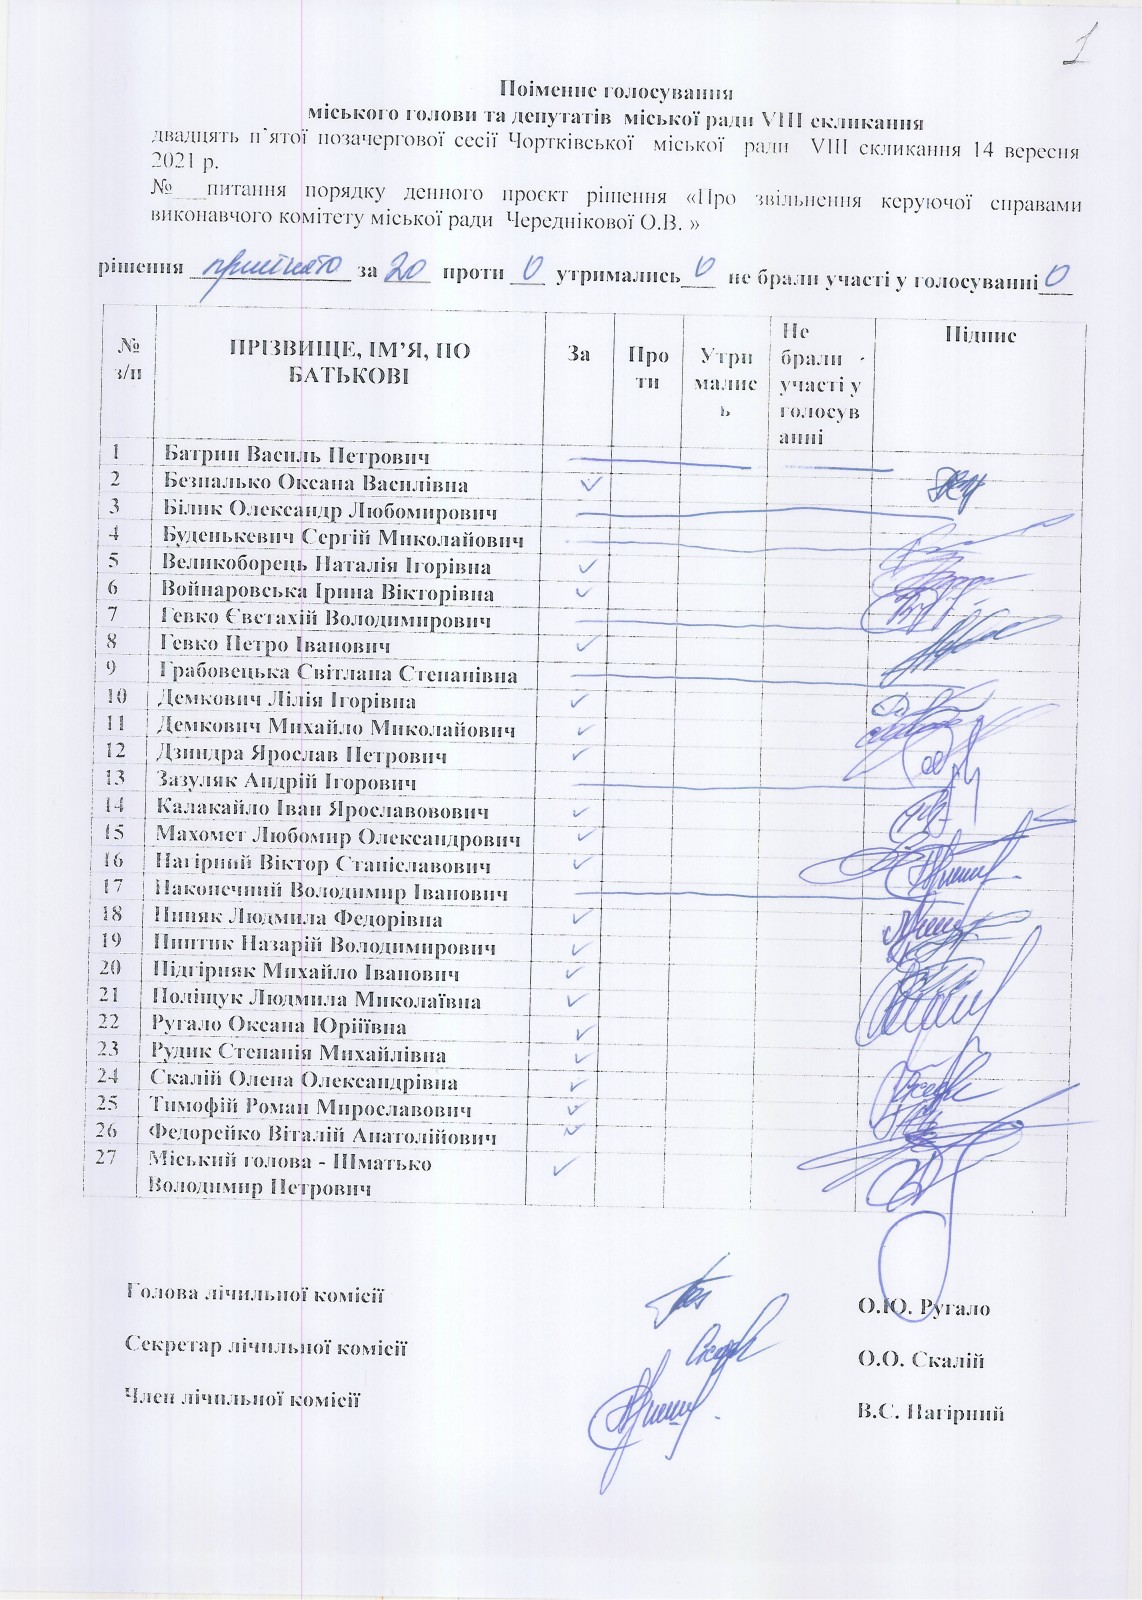 1
Поіменне голосування
міського голови та депутатів міської ради VIII скликання
двадцять п`ятої позачергової сесії Чортківської міської ради VIII скликання 14 вересня
2021 р.
№___питання порядку денного проєкт рішення «Про звільнення керуючої справами
виконавчого комітету міської ради Череднікової О.В. »
рішення прийнято за 20 проти 0 утримались 0 не брали участі у голосуванні 0
№ з/п ПРІЗВИЩЕ, ІМ’Я, ПО БАТ�ькОВІ За Про ти Утри малис ь Не брали - участі у голосув анні Підпис
1 Батрин Василь Петрович
2 Безпалько Оксана Василівна
3 Білик Олександр Любомирович
4 Буденькевич Сергій Миколайович
5 Великоборець Наталія Ігорівна
6 Войнаровська Ірина Вікторівна
7 Гевко Євстахій Володимирович
8 Гевко Петро Іванович
9 Грабовецька Світлана Степанівна
10 Демкович Лілія Ігорівна
11 Демкович Михайло Миколайович
12 Дзиндра Ярослав Петрович
13 Зазуляк Андрій Ігорович
14 Калакайло Іван Ярославовович
15 Махомет Любомир Олександрович
16 Нагірний Віктор Станіславович
17 Наконечний Володимир Іванович
18 Пиняк Людмила Федорівна
19 Пиптик Назарій Володимирович
20 Підгірняк Михайло Іванович
21 Поліщук Людмила Миколаївна
22 Ругало Оксана Юріїївна
23 Рудик Степанія Михайлівна
24 Скалій Олена Олександрівна
25 Тимофій Роман Мирославович
26 Федорейко Віталій Анатолійович
27 Міський голова - Шматько
Володимир Петрович
Голова лічильної комісії О.Ю. Ругало
Секретар лічильної комісії О.О. Скалій
Член лічильної комісії В.С. Нагірний